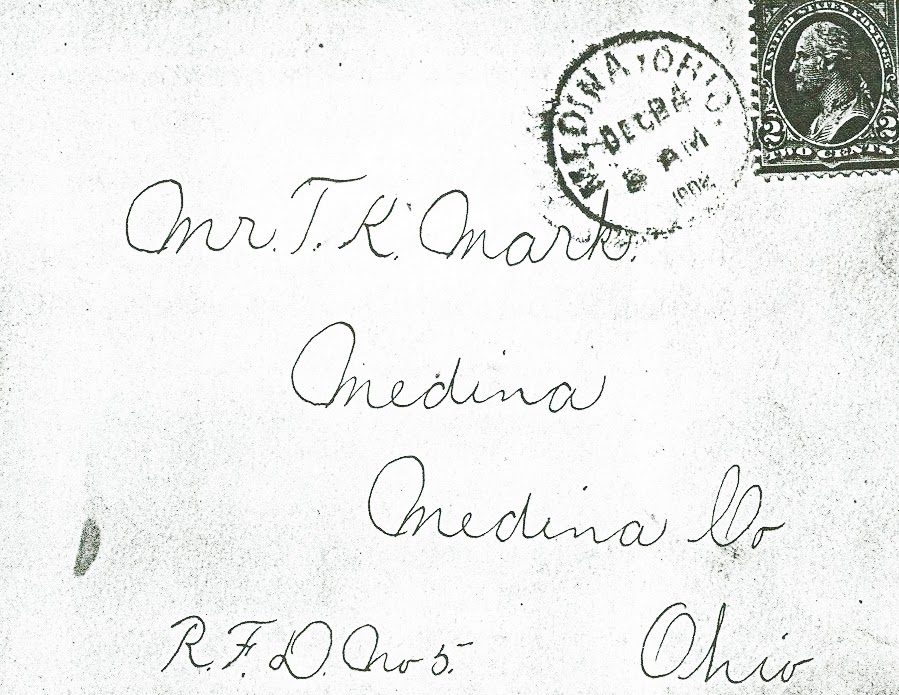 MEDINA, OHIO
DEC 24
8 AM
1902
UNITED STATES POSTAGE
2 2
TWO CENTS
Mr. T. K. Mark.
Medina
Medina Co
R.F.D. No 5.
Ohio